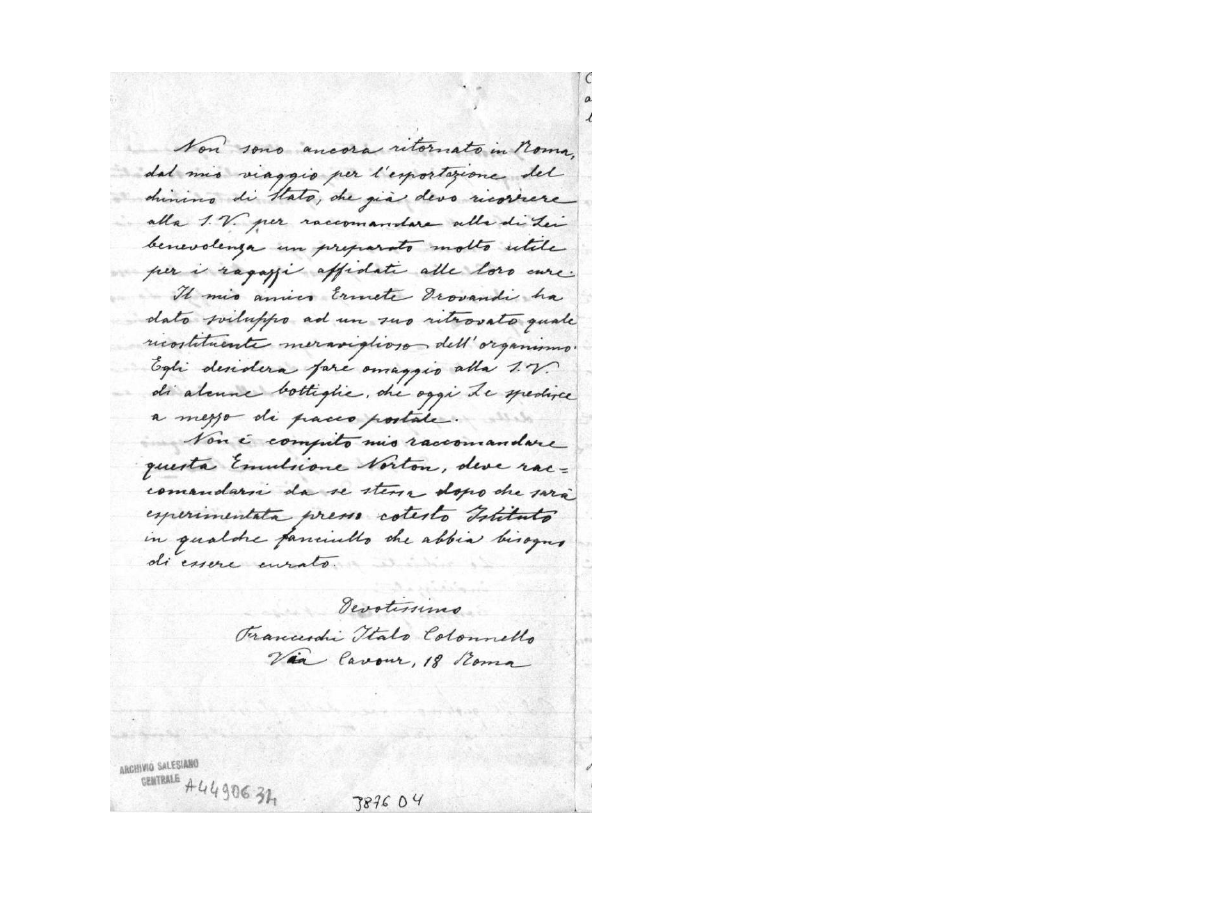 Non sono ancora ritornato in Roma,
dal mio viaggio per l'esportazione del
chinino di Stato, che già devo ricorrere
alla S. V. per raccomandare alla di Lei
benevolenza un preparato molto utile
per i ragazzi affidati alle loro cure.
Il mio amico Ermete Drovandi ha
dato sviluppo ad un suo ritrovato quale
ricostituente meraviglioso dell'organismo.
Egli desidera fare omaggio alla S. V.
di alcune bottiglie, che oggi Le spedisce
a mezzo di pacco postale.
Non è compito mio raccomandare
questa Emulsione Norton, deve rac=
comandarsi da se stessa dopo che sarà
esperimentata presso cotesto Istituto
in qualche fanciullo che abbia bisogno
di essere curato.
Devotissimo
Franceschi Italo Colonnello
Via Cavour, 18 Roma
ARCHIVIO SALESIANO
CENTRALE
A4490634
3876 D4